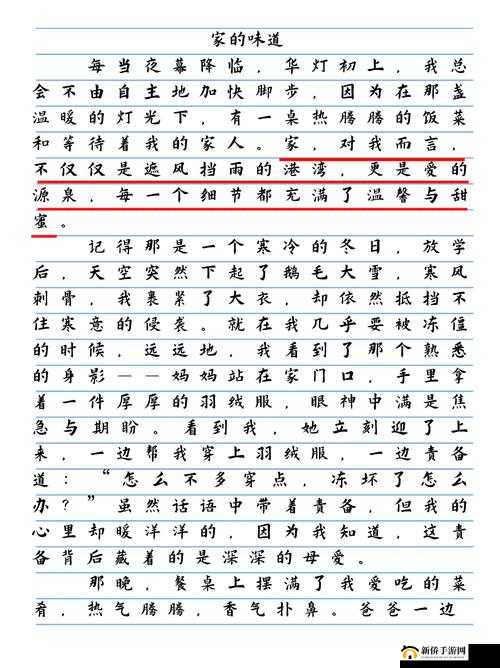 家的味道
每当夜幕降临，华灯初上，我总
会不由自主地加快脚步，因为在那盏
温暖的灯光下，有一桌热腾腾的饭菜
和等待着我的家人。家，对我而言，
不仅仅是遮风挡雨的港湾，更是爱的
源泉，每一个细节都充满了温馨与甜
蜜。
记得那是一个寒冷的冬日，放学
后，天空突然下起了鹅毛大雪，寒风
刺骨，我裹紧了大衣，却依然抵挡不
住寒意的侵袭。就在我几乎要被冻僵
的时候，远远地，我看到了那个熟悉
的身影——妈妈站在家门口，手里拿
着一件厚厚的羽绒服，眼神中满是焦
急与期盼。看到我，她立刻迎了上
来，一边帮我穿上羽绒服，一边责备
道：“怎么不多穿点，冻坏了怎么
办？”虽然话语中带着责备，但我的
心里却暖洋洋的，因为我知道，这责
备背后藏着的是深深的母爱。
那晚，餐桌上摆满了我爱吃的菜
肴，热气腾腾，香气扑鼻。爸爸一边
新侨手游网